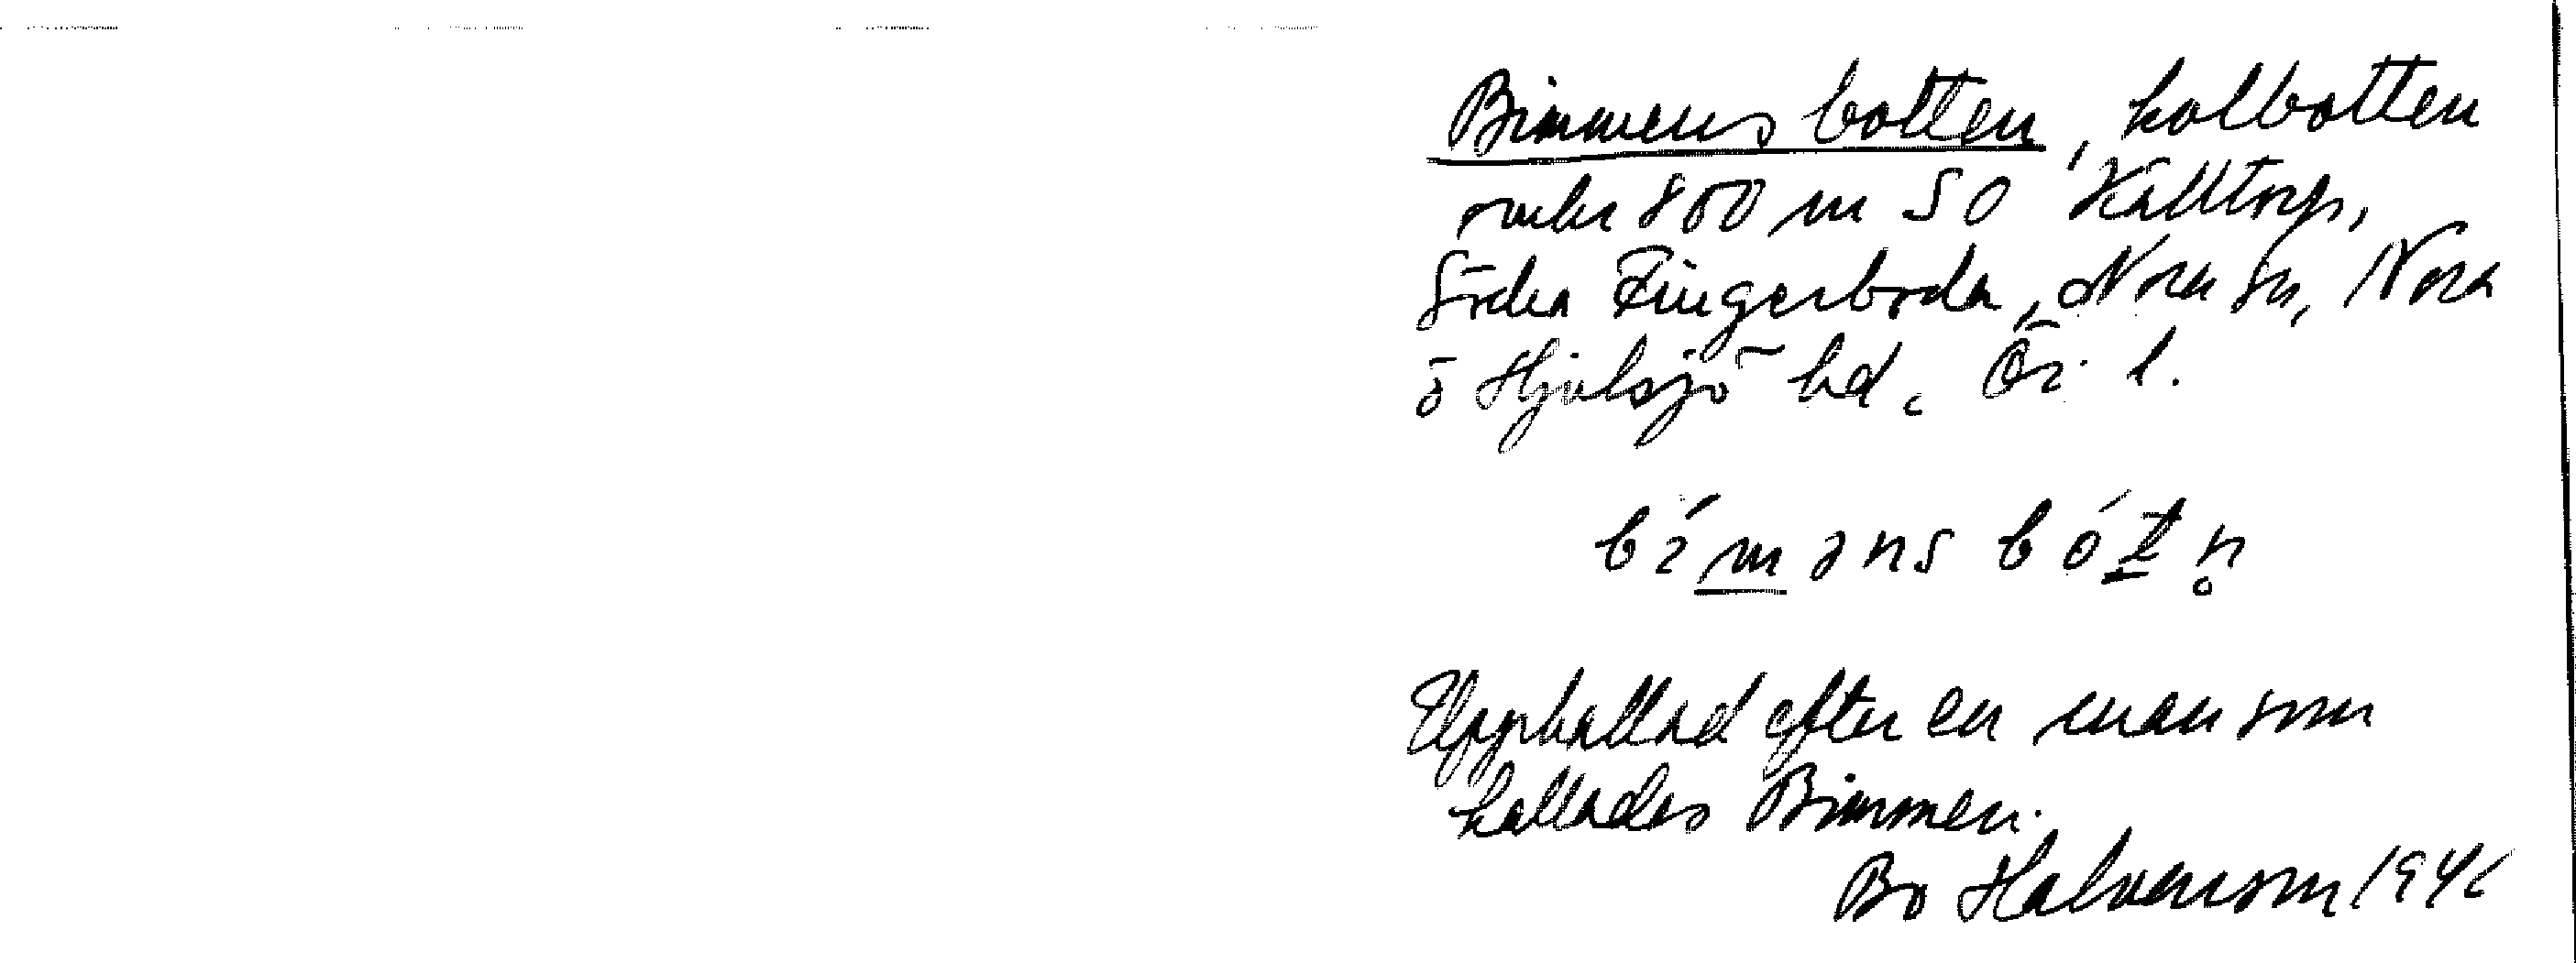 Bimmens botten, kolbotten
omkr 800 m SO Kalltorp,
Södra Fingerboda, Nora sn, Nora
o Hjulsjö hd. Ör. l.
bíməns bótn̥
Uppkallad efter en man som
kallades Bimmen.
Bo Halvarson